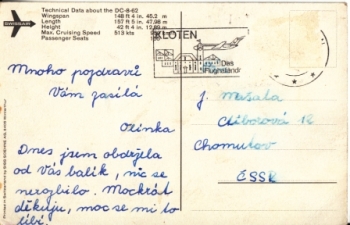 SWISSAIR
Technical Data about the DC-8-62
Wingspan 148 ft 4 in, 45.2 m
Length 157 ft 5 in, 47.98 m
Height 42 ft 4 in,
Max. Cruising Speed 513 kts
Passenger Seats
KLOTEN
Das
Flughafen
Mnoho pozdravů
Vám zasílá
Ozinka
Dnes jsem obdržela
od Vás balík, nic se
nerozbilo. Mockrát
děkuju, moc se mi to
líbí.
J. Mašata
Ctiborova 12
Chomutov
ČSSR